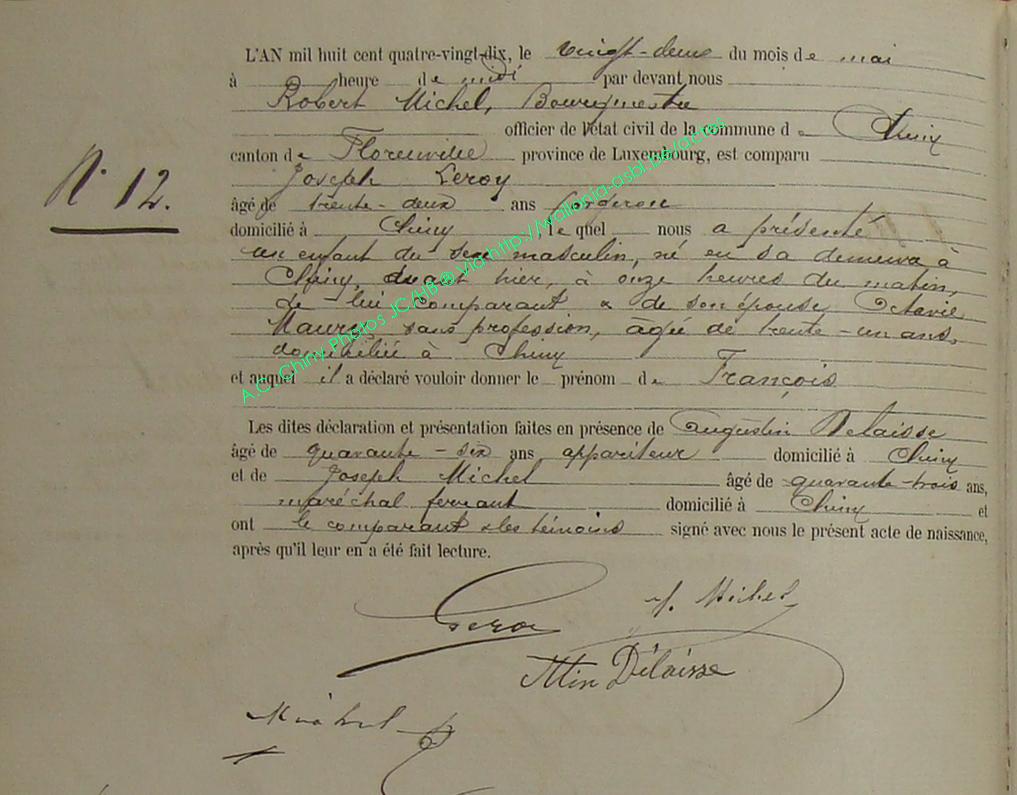 L'AN mil huit cent quatre-vingt-dix, le vingt-deux du mois de mai
à heure de midi par devant nous
Robert Michel, Bourgmestre
officier de l'état civil de la commune de Chiny
N° 12.
canton de Florenville province de Luxembourg, est comparu
Joseph Leroy
âgé de trente-deux ans forgeron
domicilié à Chiny, le quel nous a présenté
un enfant du sexe masculin, né en sa demeure à
Chiny, avant hier, à onze heures du matin,
de lui comparant & de son épouse, Octavie
sans profession, âgée de trente-un ans
domiciliée à Chiny
et auquel il a déclaré vouloir donner le prénom de François
Les dites déclaration et présentation faites en présence de Augustin Delaisse
âgé de quarante-six ans appariteur domicilié à Chiny
et de Joseph Michel âgé de quarante-trois ans,
maréchal ferrant domicilié à Chiny et
ont le comparant & les témoins signé avec nous le présent acte de naissance,
après qu'il leur en a été fait lecture.
J. Michel
Leroy
Delaisse
Michel
A.C. Chiny Photos JCAHB ® Via http://wallonia-asbl.be/actes